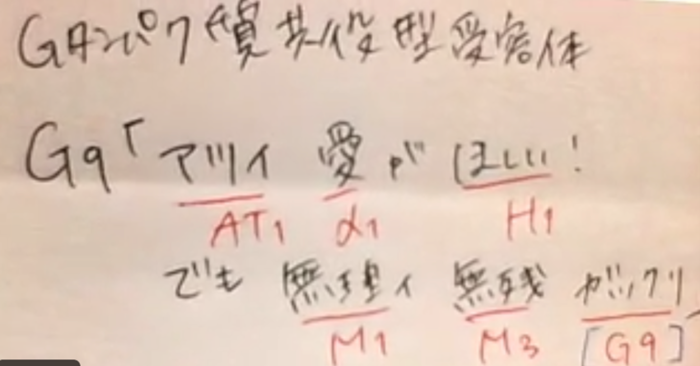 Gタンパク質共役型受容体
Gq「アツイ 愛が ほしい!
AT₁ α₁ H₁
でも 無理ィ 無残 ガックリ
M₁ M₃ [Gq]